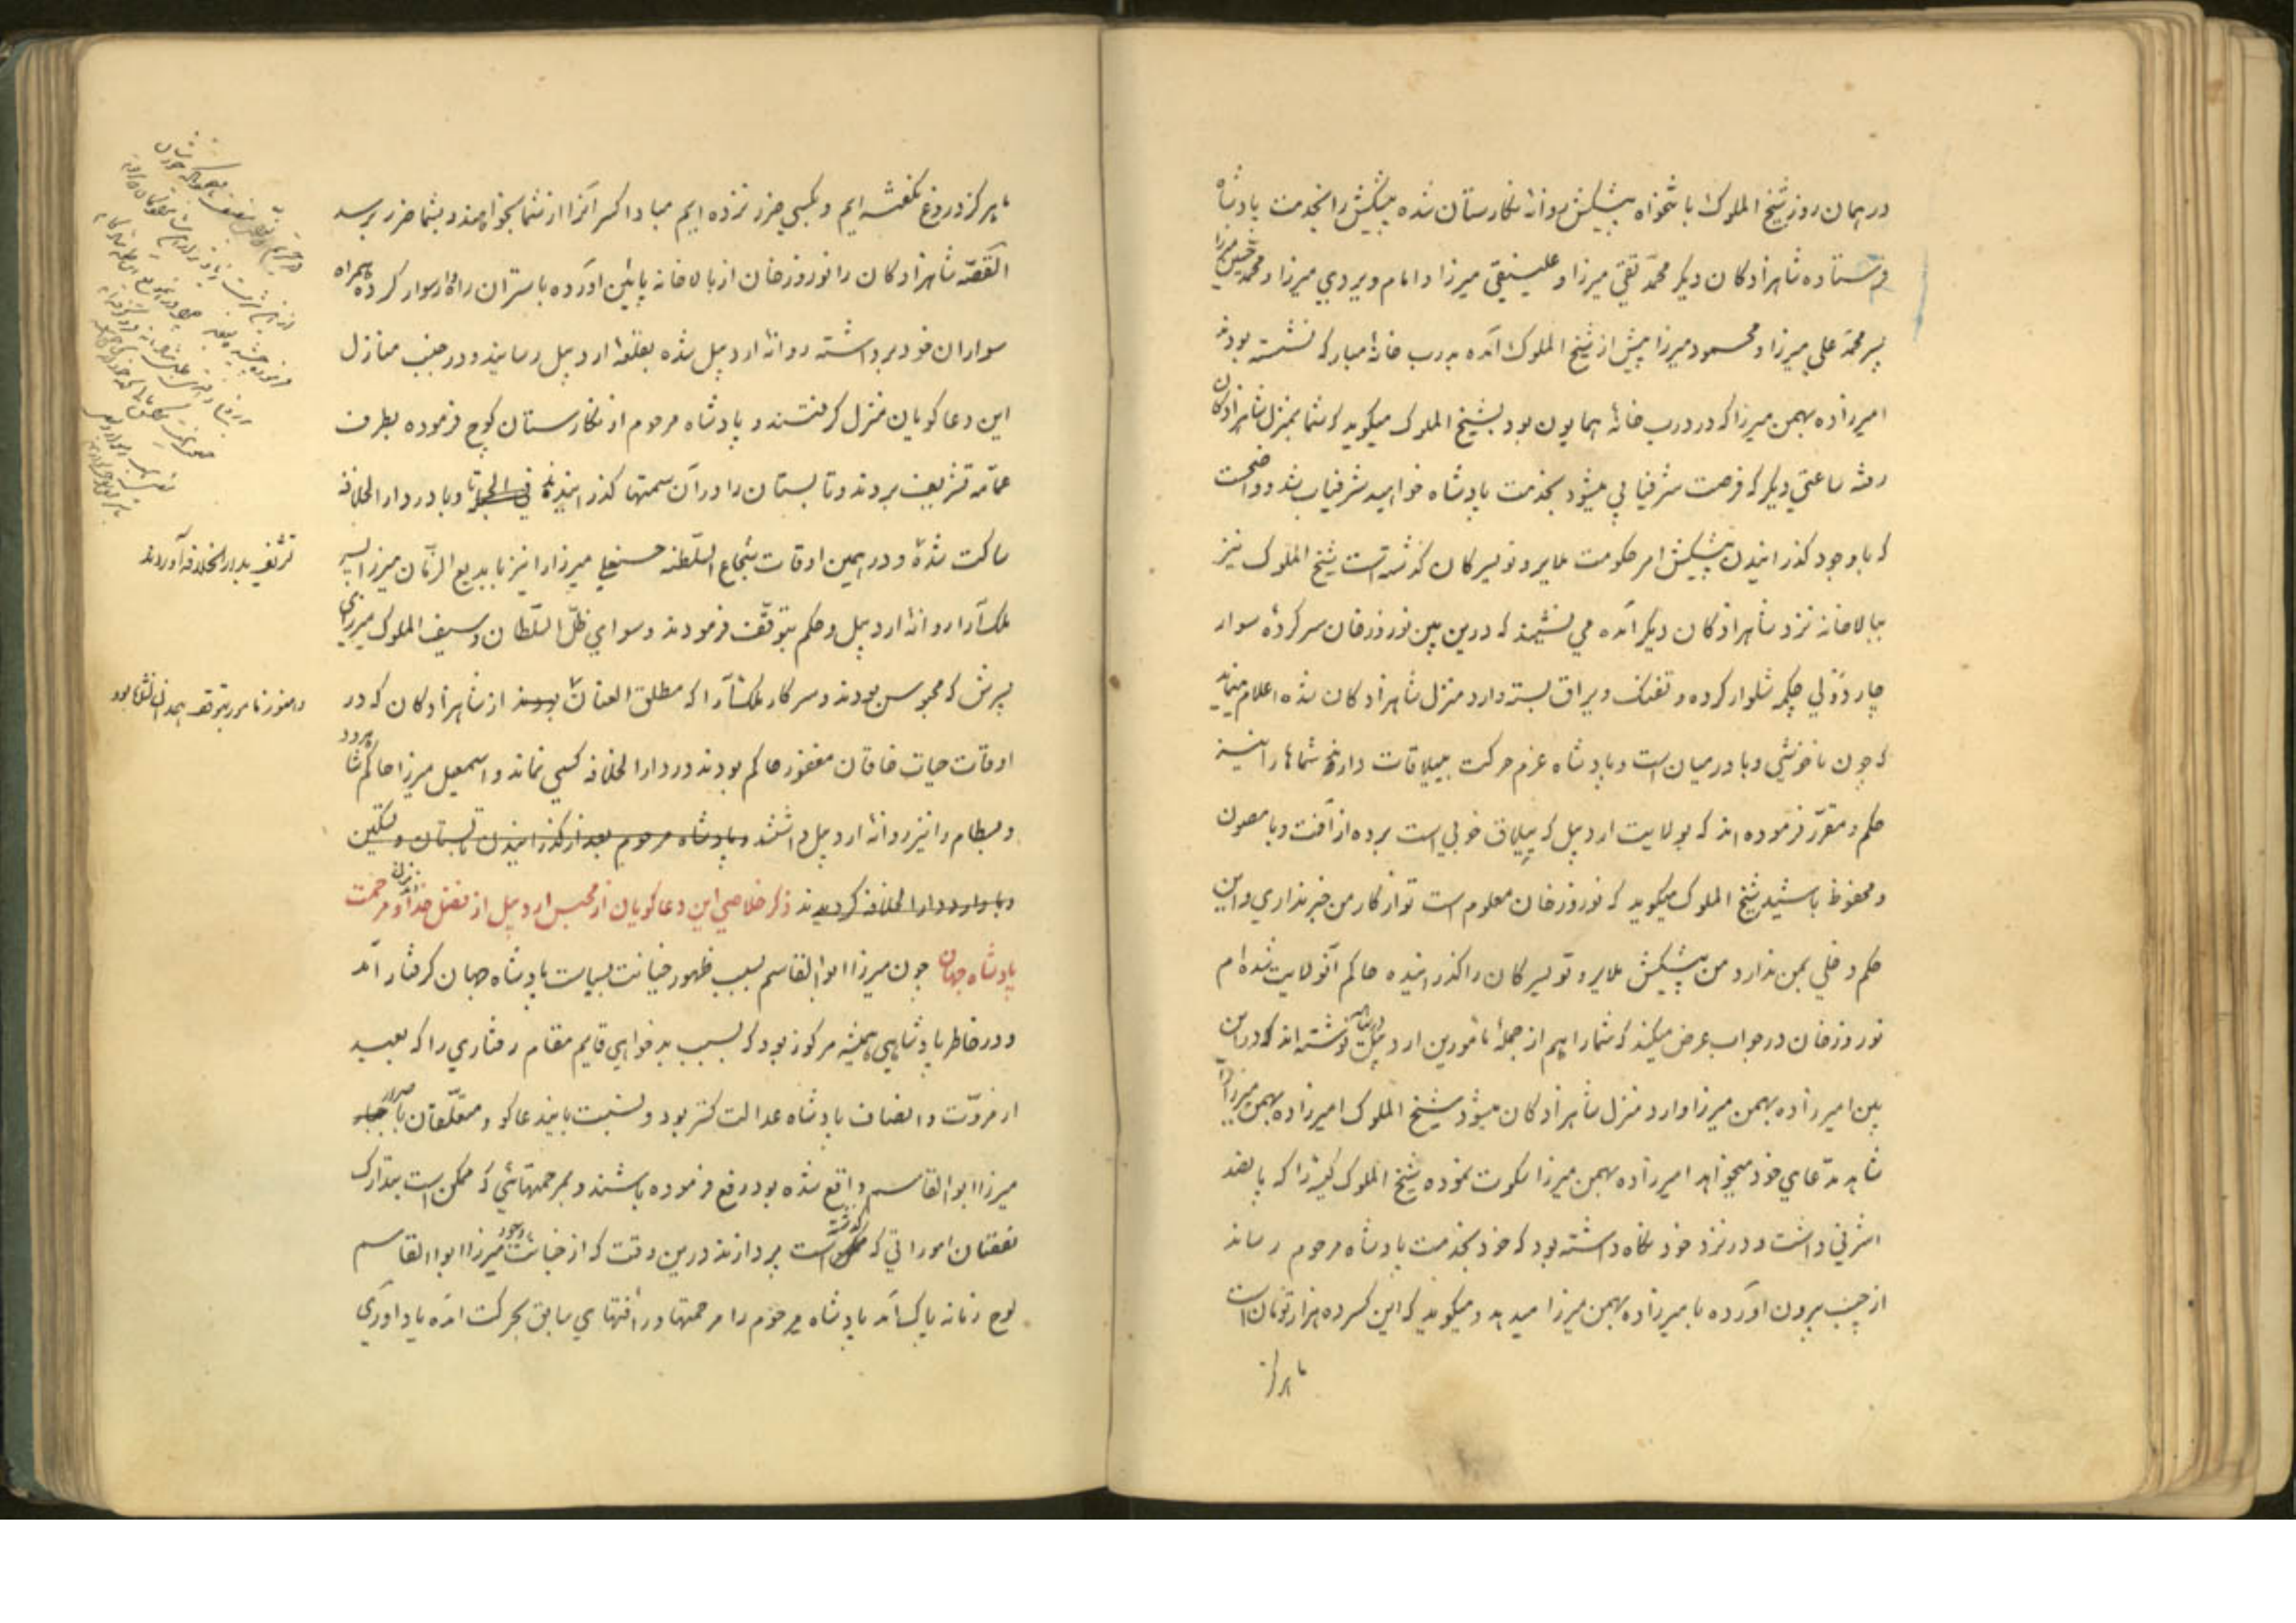 در همان روز شیخ الملوک با تنخواه پیشکش روانهٔ نگارستان شده پیشکش را بخدمت پادشاه
فرستاده شاهزادکان دیکر محمد تقی میرزا و علینقی میرزا و امام ویردی میرزا و محمد حسین میرزا
پسر محمد علی میرزا و محمود میرزا پیش از شیخ الملوک آمده بدرب خانهٔ مبارکه نشسته بودند
امیرزاده بهمن میرزا که در درب خانهٔ همایون بود بشیخ الملوک میکوید که شما بمنزل شاهزادکان
رفته ساعتی دیکر که فرصت شرفیابی میشود بخدمت پادشاه خواهید شرفیاب شد و واضحست
که با وجود کذرانیدن پیشکش امر حکومت ملایر و تویسرکان کذشته است شیخ الملوک نیز
ببالاخانه نزد شاهزادکان دیکر آمده می نشیند که درین بین نوروزخان سرکردهٔ سوار
چاردولی چکمه شلوار کرده و تفنک و یراق بسته وارد منزل شاهزادکان شده اعلام مینماید
که چون ناخوشی وبا در میان است و پادشاه عزم حرکت ییلاقات دارند شماها را نیز
حکم و مقرر فرموده اند که بولایت اردبیل که ییلاق خوبی است برده از آفت وبا مصون
و محفوظ باشید شیخ الملوک میکوید که نوروزخان معلوم است تو از کار من خبر نداری و این
حکم دخلی بمن ندارد من پیشکش ملایر و تویسرکان را کذرانیده حاکم آنولایت شده ام
نوروزخان در جواب عرض میکند که شما را هم از جملهٔ مأمورین اردبیل نوشته اند که در این
بین امیرزاده بهمن میرزا وارد منزل شاهزادکان میشود شیخ الملوک امیرزاده بهمن میرزا را
شاهد مدعای خود میخواهد امیرزاده بهمن میرزا سکوت نموده شیخ الملوک کیسهٔ را که پانصد
اشرفی داشت و در نزد خود نکاه داشته بود که خود بخدمت پادشاه مرحوم رساند
از جیب بیرون آورده بامیرزاده بهمن میرزا میدهد و میکوید که این کسر ده هزار تومان است
ما هرکز
ما هرکز دروغ نکفته ایم و بکسی ضرر نزده ایم مبادا کسر آنرا از شما بخواهند و بشما ضرر برسد
القصه شاهزادکان را نوروزخان از بالاخانه پائین آورده باستران راهوار سوار کرده همراه
سواران خود برداشته روانهٔ اردبیل شده بقلعهٔ اردبیل رسانید و در جنب منازل
این دعاکویان منزل کرفتند و پادشاه مرحوم از نکارستان کوچ فرموده بطرف
عمامه تشریف بردند و تابستان را در آن سمتها کذرانیدند فی الجمله تا وبا در دار الخلافه
ساکت شده و در همین اوقات شجاع السلطنه حسنعلی میرزا را نیز با بدیع الزمان میرزا پسر
ملک آرا روانهٔ اردبیل و حکم بتوقف فرمودند و سوای ظل السلطان و سیف الملوک میرزای
پسرش که محبوس بودند و سرکار ملک آرا که مطلق العنان بودند از شاهزادکان که در
اوقات حیات خاقان مغفور حاکم بودند در دار الخلافه کسی نماند و اسمعیل میرزا حاکم شاهرود
و بسطام را نیز روانهٔ اردبیل داشتند و پادشاه مرحوم بعد از کذرانیدن تابستان و تسکین
وبا وارد دار الخلافه کردیدند ذکر خلاصی این دعاکویان از محبس اردبیل از فضل خداوند و مرحمت
پادشاه جهان چون میرزا ابو القاسم بسبب ظهور خیانت بسیاست پادشاه جهان کرفتار آمد
و در خاطر پادشاهی همیشه مرکوز بود که بسبب بدخواهی قایم مقام رفتاری را که بعید
از مروت و انصاف پادشاه عدالت کستر بود و نسبت باین دعاکو و متعلقان باصرار
میرزا ابو القاسم واقع شده بود رفع فرموده باشند و بمرحمتهائی که ممکن است بتدارک
نقصان اموراتی که کذشته است پردازند درین وقت که از خباثت وجود میرزا ابو القاسم
لوح زمانه پاک آمد پادشاه مرحوم را مرحمتها و رأفتهای سابق بحرکت آمده یاد آوری
تشریف بدار الخلافه آوردند